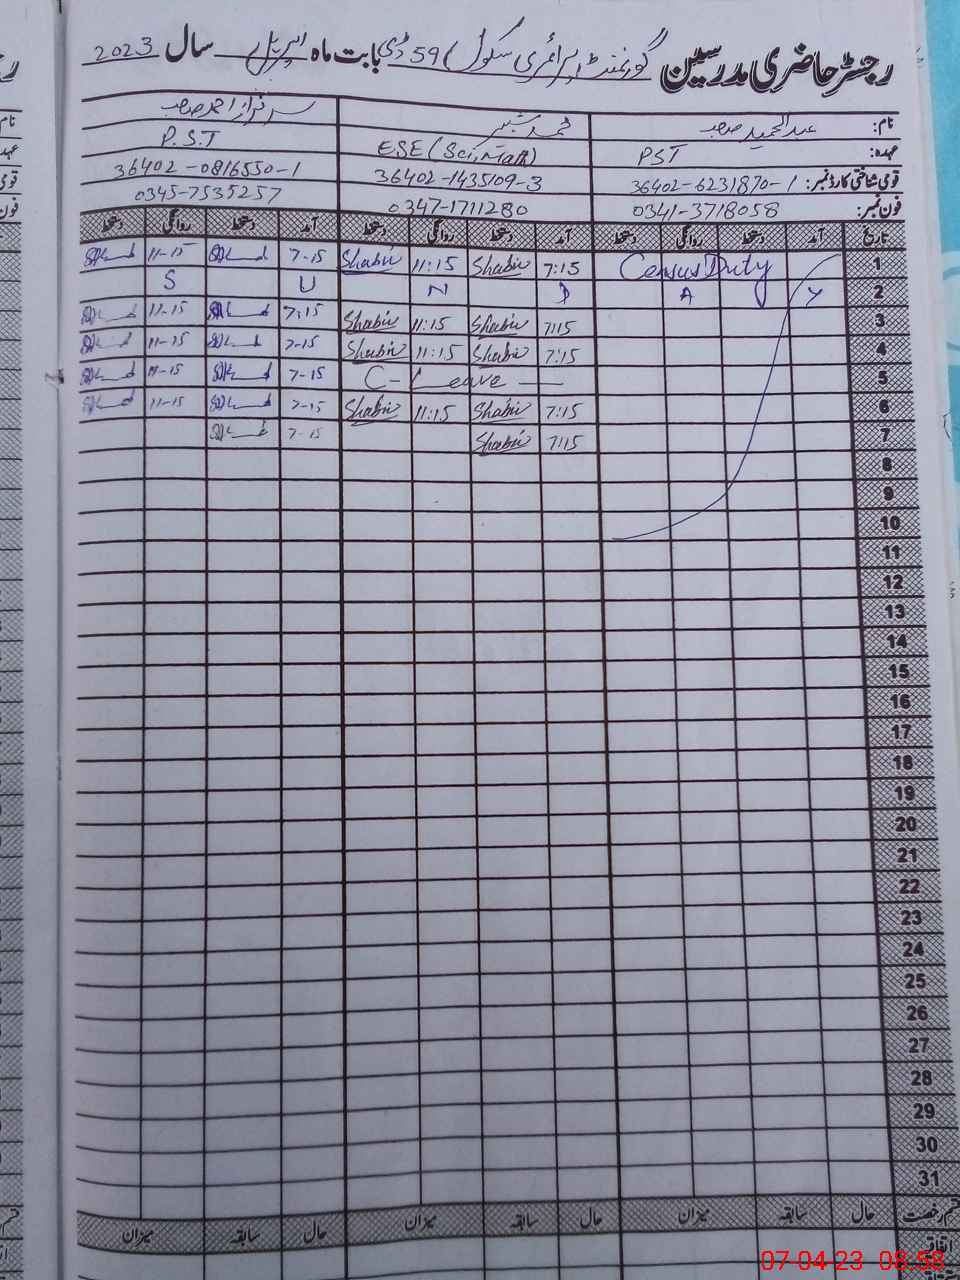 رجسٹر حاضری مدرسین گورنمنٹ پرائمری سکول 59 ڈی بابت ماہ اپریل سال 2023
نام: عبدالحمید صاحب محمد شبیر سرفراز احمد صاحب
عہدہ: PST ESE (Sci, Math) P.S.T
قومی شناختی کارڈ نمبر: 36402-6231870-1 36402-1435109-3 36402-0816550-1
فون نمبر: 0341-3718058 0347-1711280 0345-7535257
تاریخ آمد دستخط روانگی دستخط آمد دستخط روانگی دستخط آمد دستخط روانگی دستخط
1 Census Duty 7:15 Shabir 11:15 Shabir 7-15 11-15
2 S U N D A Y
3 7:15 Shabir 11:15 Shabir 7:15 11-15
4 7:15 Shabir 11:15 Shabir 7-15 11-15
5 C-Leave 7-15 11-15
6 7:15 Shabir 11:15 Shabir 7-15 11-15
7 7:15 Shabir 7-15
8
9
10
11
12
13
14
15
16
17
18
19
20
21
22
23
24
25
26
27
28
29
30
31
قسم رخصت حال سابقہ میزان حال سابقہ میزان حال سابقہ میزان
اتفاقیہ
07-04-23 08:58